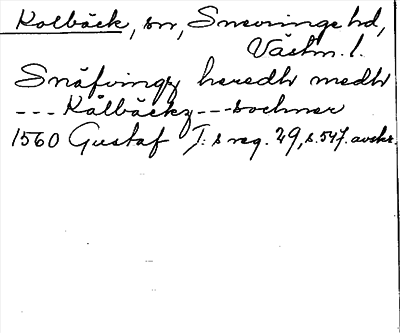 Kolbäck, sn, Snevringe hd,
Västm. l.
Snäfringz heredh medh
--- Kålbäckz --- sochner
1560 Gustaf I:s reg. 29, s. 547. avskr.